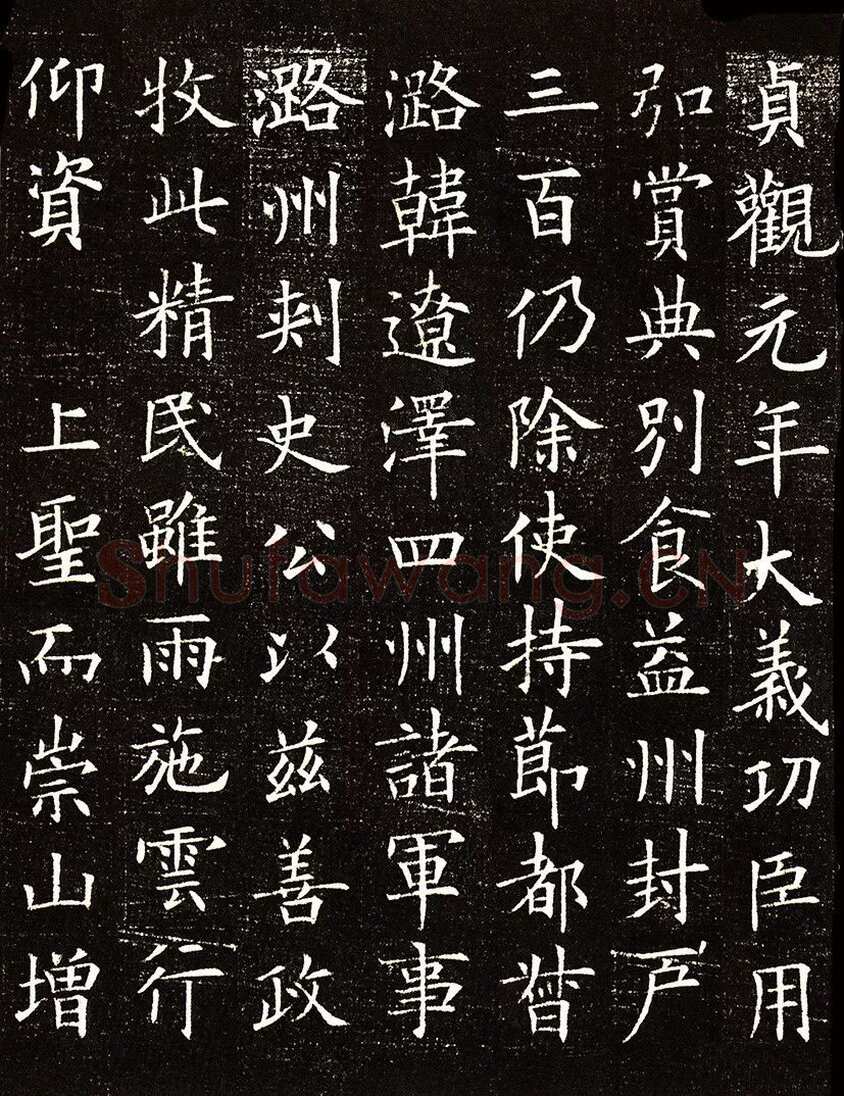 貞觀元年大義功臣用
弘賞典別食益州封戶
三百仍除使持節都督
潞韓遼澤四州諸軍事
潞州刺史公以茲善政
牧此精民雖雨施雲行
仰資 上聖而崇山增
Shufawang.CN